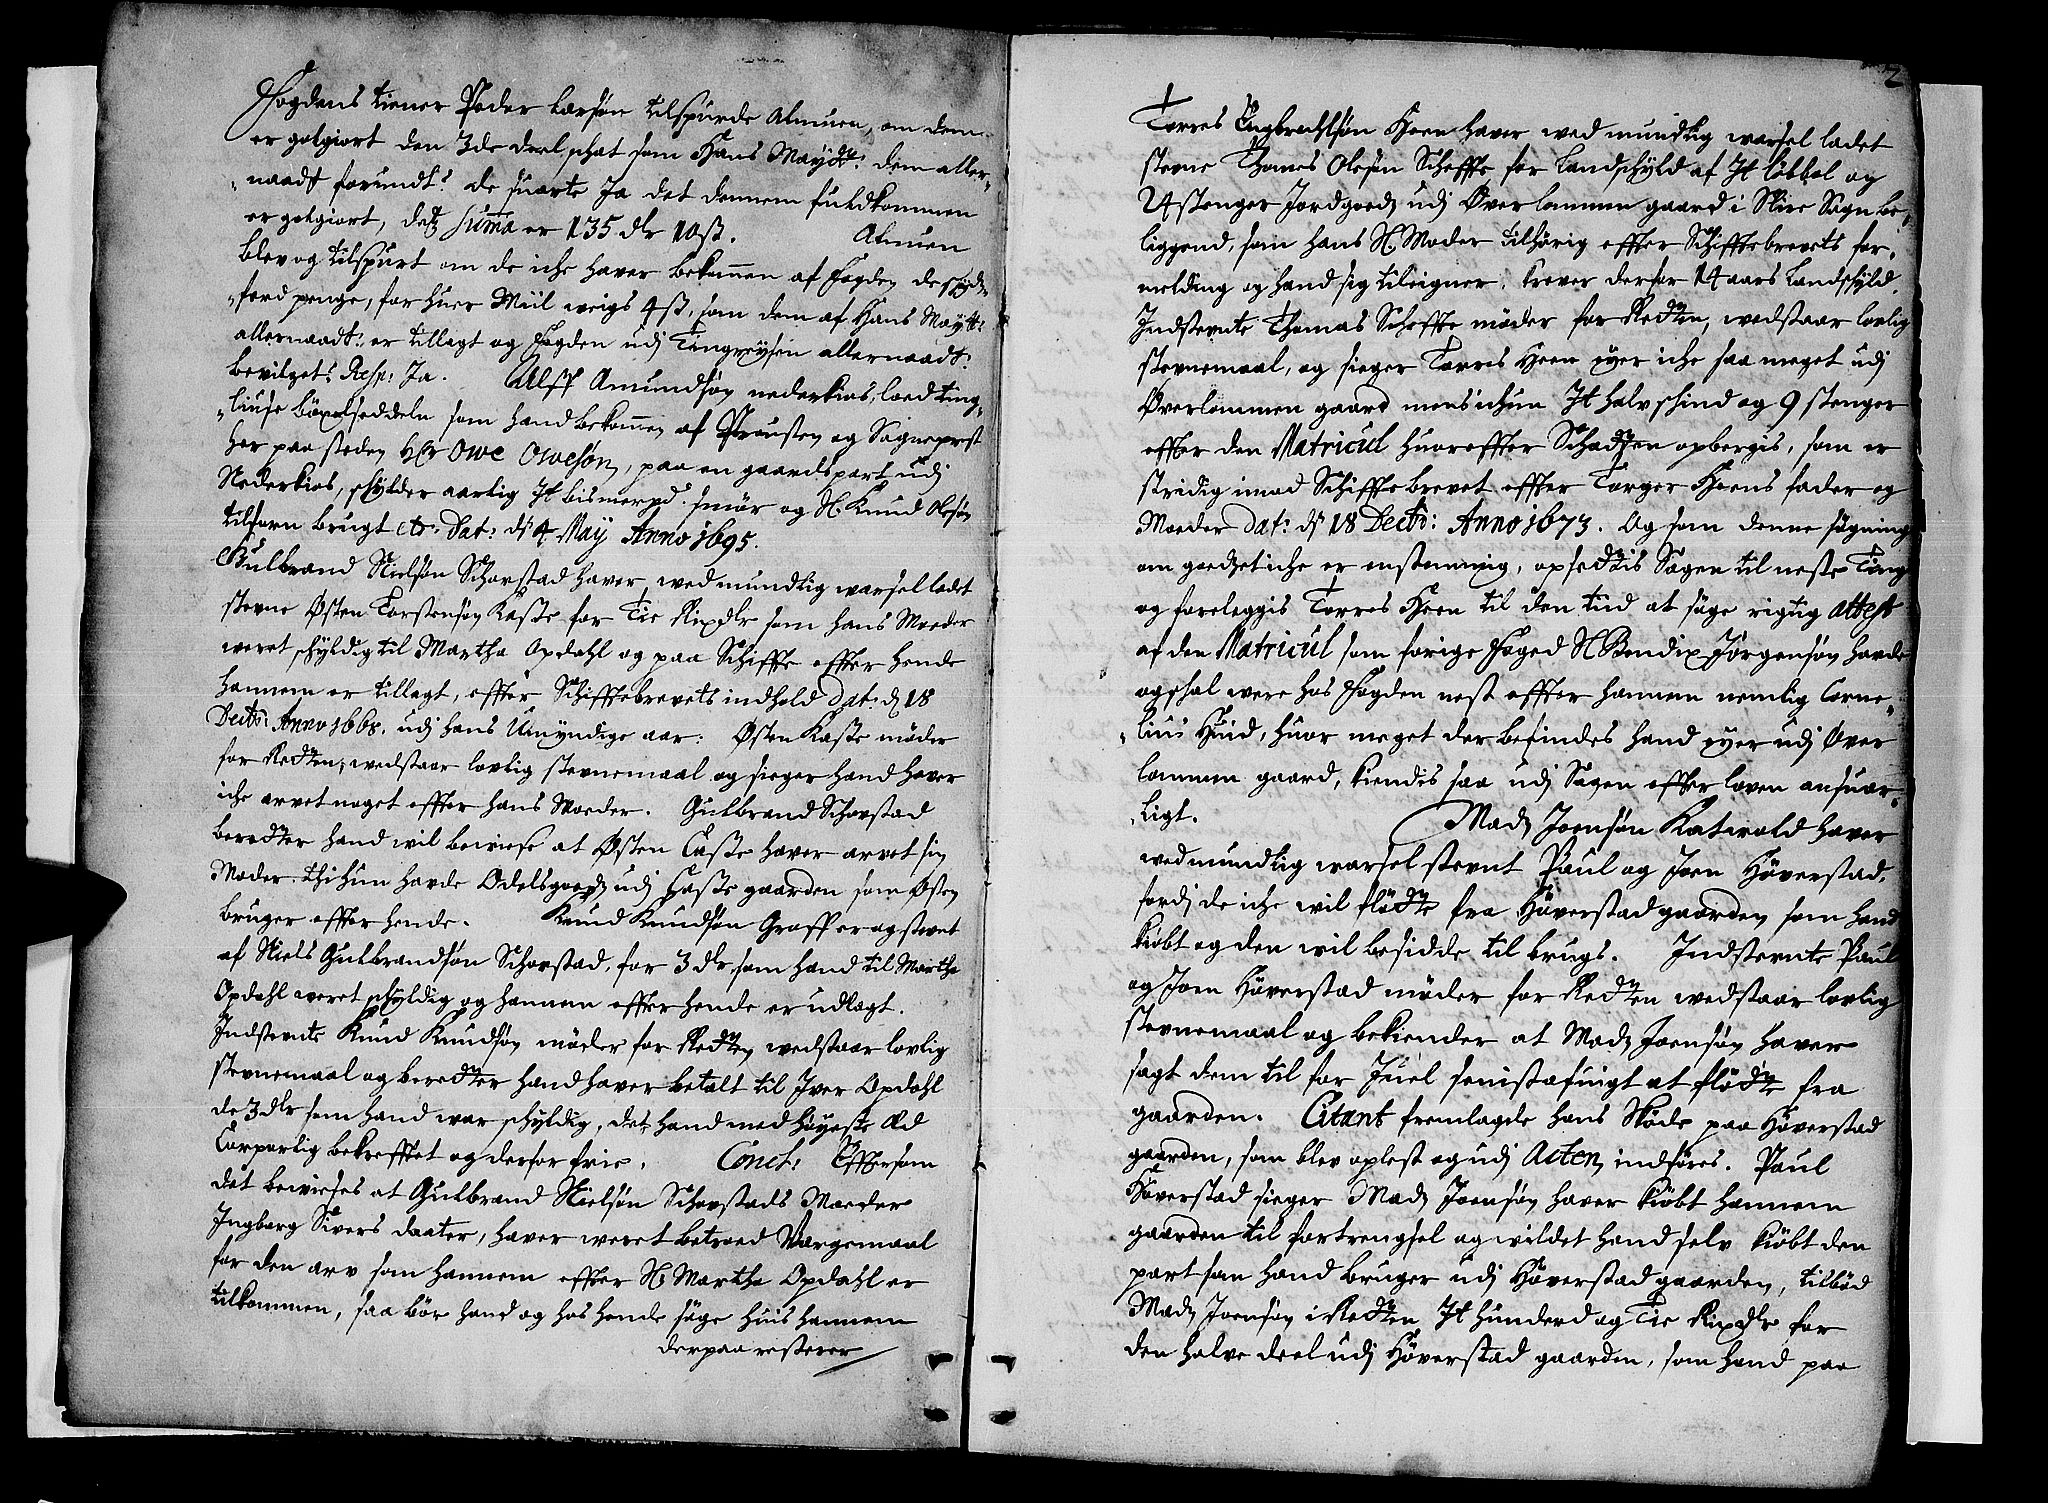 Fogdens tiener Peder Larsøn tilspurde Almuen, om dem
er godgiort den 3de deel schat som Hans Maÿtt: dem aller-
naadt forundt? de suarte Ja det dennem fuldkommen
er godgiort, dets Suma er 135 dlr 10ß. Almuen
blev og tilspurt om de iche haver bekommen af Fogden de schyds-
ferd penge, for huer Miil weigs 4ß, som dem af Hans Maÿtt:
allernaadt: er tillagt og Fogden udj Tingreysen allernaadt:
bevilget? Resp: Ja. Alff Amundsøn nederkios, loed ting-
liuse böxelseddeln som hand bekommen af Prousten og Sogneprest
her paa steden Hr Owe Owesön, paa en gaardspart udj
Nederkios, schylder aarlig It bismerpd. smör og Sl. Knud Olesøn
tilforn brugt etc: Dat: d: 4 May Anno 1695.
Gulbrand Nielsøn Schovstad haver med mundtlig warsel ladet
stevne Østen Torstensøn Kaste for Tie Rixdlr som hans Moeder
weret schyldig til Martha Opdahl og paa Schiffte effter hende
hannem er tillagt, effter Schifftebrevets indhold Dat: d 18
Decbr: Anno 1668. udj hans Umyndige aar: Østen Kaste møder
for Retten, wedstaar lovlig stevnemaal og sieger hand haver
iche arvet noget effter hans Moeder. Gulbrand Schovstad
beretter hand wil bewiese at Østen Caste haver arvet sin
Moder. thi hun havde Odelsgoeds udj Kaste gaarden som Østen
bruger effter hende. Knud Knudsøn Groff er og stevnt
af Niels Gulbrandsøn Schovstad, for 3 dlr, som hand til Martha
Opdahl weret schyldig og hannem effter hende er udlagt.
Indstevnte Knud Knudsøn møder for Retten, wedstaar lovlig
stevnemaal og beretter hand haver betalt til Iver Opdahl
de 3 dlr som hand war schyldig, det hand med høyeste Æd
Corporlig bekrefftet og derfor frie. Concl: Efftersom
det bewieses at Gulbrand Nielsøn Schovstads Moeder
Ingborg Sivers daater, haver weret betroed Wargemaal
for den arv som hannem effter Sl: Martha Opdahl er
tilkommen, saa bör hand og hos hende söge huis hannem
derpaa resterer
2
Torres Engbrechtsøn Hoen haver wed mundtlig warsel ladet
stevne Thomes Olesøn Scheffte for Landschyld af It Löbbol og
4 stenger Jordgoeds udj Øverlommen gaard i Slire Sogn be-
liggend, som hans Sl. Moder tilhörig effter Schifftebrevets for-
melding og hand sig tileigner, krever derfor 14 aars Landschyld.
Indstevnte Thomas Scheffte møder for Retten, wedstaar lovlig
stevnemaal, og sieger Torres Hoen eyer iche saa meget udj
Øverlommen gaard mens ichun It halv schind og 9 stenger
effter den Matricul huoreffter Schatten opbergis, som er
stridig imod Schifftebrevet effter Torger Hoens fader og
Moeder Dat: d: 18 Decbr: Anno 1673. Og som denne søgning
om goedzet iche er enstemmig, opsettis Sagen til neste Ting
og foreleggis Torres Hoen til den tiid at søge rigtig attest
af den Matricul som forige Foged Sl Bendix Jörgensøn havde
og schal were hos Fogden nest effter hannem nemlig Corne-
lius Hiud, huor meget der befindes hand eyer udj Øver
lommen gaard, kiendis saa udj Sagen effter loven ansuar-
ligt. Mads Joensøn Katwold haver
wed mundtlig warsel stevnt Paul og Joen Höverstad,
fordj de iche wil flötte fra Höverstad gaarden som hand
kiöbt og den wil besidde til brugs. Indstevnte Paul
og Joen Höverstad møder for Retten wedstaar lovlig
stevnemaal og bekiender at Mads Joensøn haver
sagt dem til for Juel senistafuigt at flötte fra
gaarden. Citant fremlagde hans Skiöde paa Höverstad
gaarden, som blev oplest og udj Acten indføres. Paul
Höverstad sieger Mads Joensøn haver kiöbt hannem
gaarden til fortrengsel og wildet hand selv kiöbt den
part som hand bruger udj Höverstad gaarden, tilböd
Mads Joensøn i Retten It hunderd og Tie Rixdlr for
den halve deel udj Höverstad gaarden, som hand paa